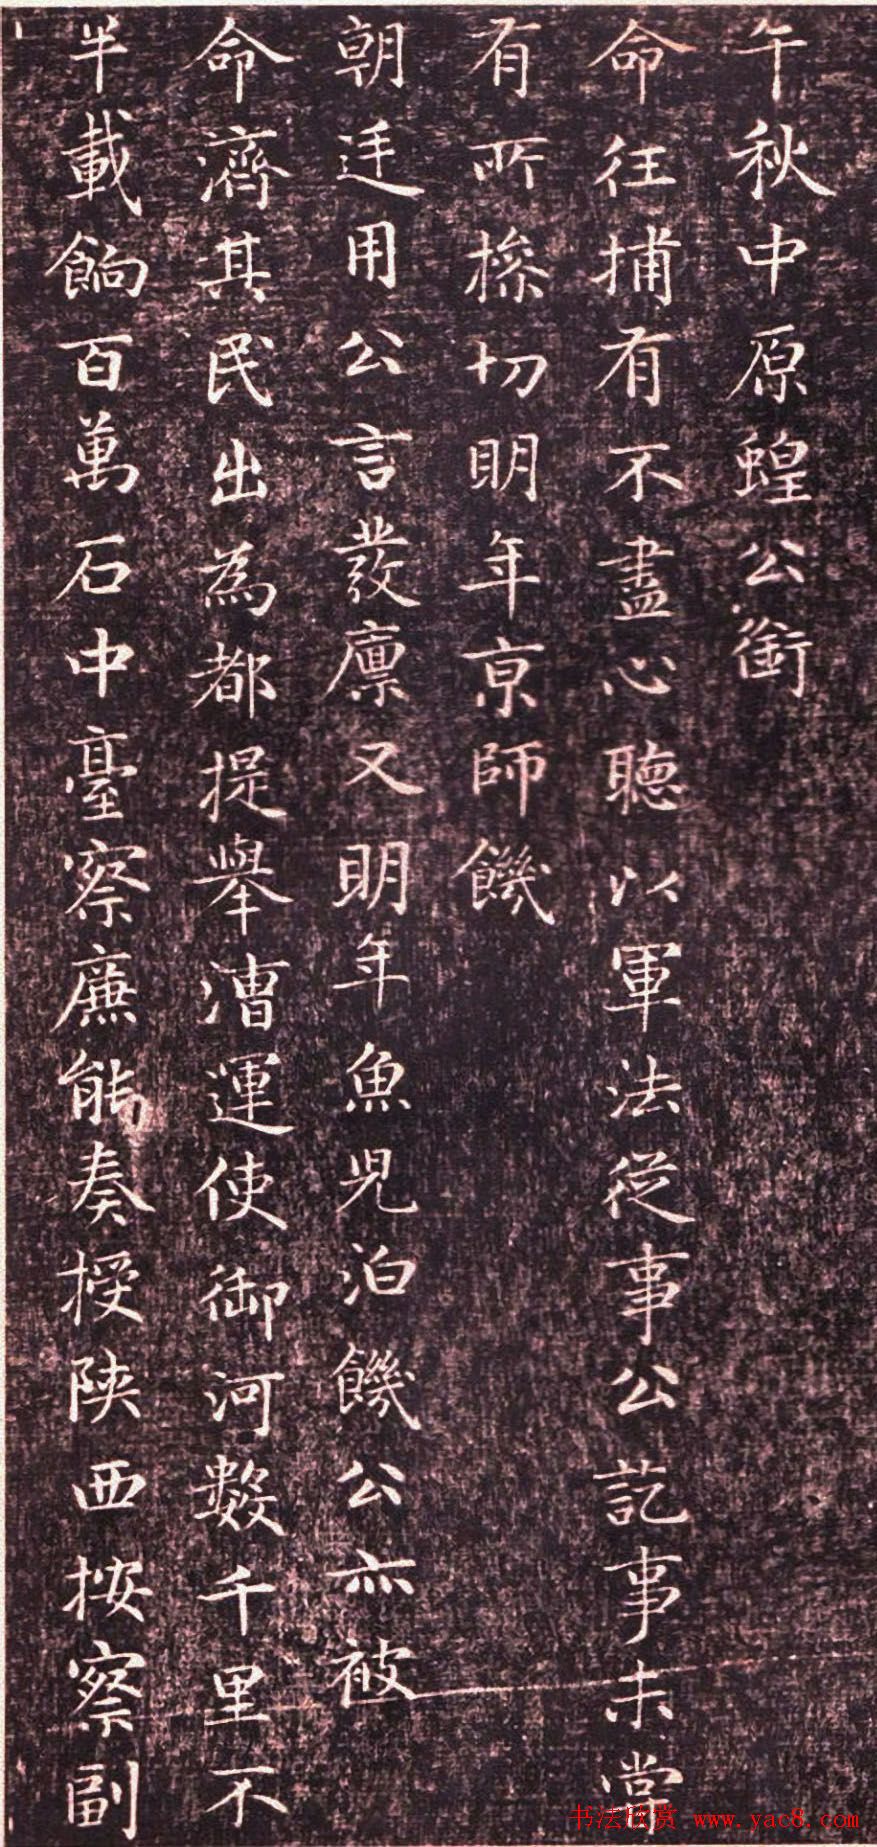 午秋中原蝗公銜
命往捕有不盡心聽以軍法從事公訖事未嘗
有所搽切明年京師饑
朝廷用公言發廩又明年魚児泊饑公亦被
命濟其民出為都提舉漕運使御河數千里不
半載餉百萬石中臺察廉能奏授陝西按察副
书法欣赏 www.yac8.com